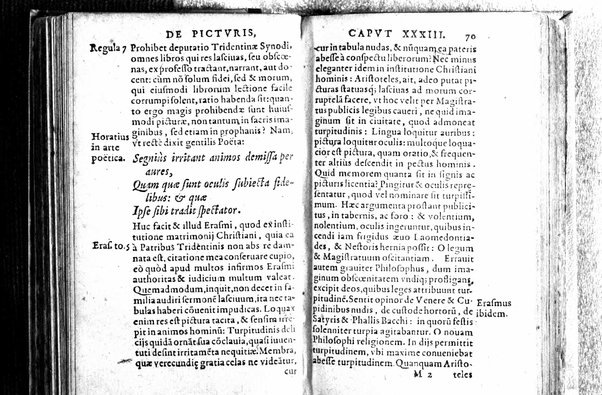 DE PICTVRIS,
Regula 7 Prohibet deputatio Tridentinæ Synodi,
omnes libros qui res lasciuas, seu obscœ-
nas, ex professo tractant, narrant, aut do-
cent: cùm nō solum fidei, sed & morum,
qui eiusmodi librorum lectione facile
corrumpi solent, ratio habenda sit: quan-
to ergo magis prohibendæ sunt huius-
modi picturæ, non tantum, in sacris ima-
ginibus, sed etiam in prophanis? Nam,
Horatius
in arte
poëtica.
vt rectè dixit gentilis Poëta:
Segniùs irritant animos demissa per
aures,
Quam quæ sunt oculis subiecta fide-
libus: & quæ
Ipse sibi tradit spectator.
Huc facit & illud Erasmi, quod ex insti-
tutione matrimonij Christiani, quia ea
Eras. to. 5 à Patribus Tridentinis non abs re dam-
nata est, citatione mea conseruare cupio,
eò quòd apud multos infirmos Erasmi
authoritas & iudicium multum valeat.
Quemadmodum, inquit, non decet in fa-
milia audiri sermonē lasciuum, ita nec ta-
bulas haberi cōuenit impudicas. Loquax
enim res est pictura tacita, & sensim irre-
pit in animos hominū: Turpitudinis deli
cijs quidā ornāt sua cōclauia, quasi iuuen-
tuti desint irritamēta nequitiæ. Membra,
quæ verecundię gratia celas ne videātur,
cur
CAPVT XXXIII. 70
cur in tabula nudas, & nūquam ea pateris
abesse à conspectu liberorum? Nec minus
eleganter idem in institutione Christiani
hominis: Aristoteles, ait, adeo putat pi-
cturas statuasq; lasciuas ad morum cor-
ruptelā facere, vt hoc velit per Magistra-
tus publicis legibus caueri, ne quid ima-
ginum sit in ciuitate, quod admoneat
turpitudinis: Lingua loquitur auribus:
pictura loquitur oculis: multoque loqua-
cior est pictura, quam oratio, & frequen-
ter altius descendit in pectus hominis.
Quid memorem quanta sit in signis ac
picturis licentia? Pingitur & oculis repræ-
sentatur, quod vel nominare sit turpissi-
mum. Hæc argumenta prostant publici-
tus, in tabernis, ac foro: & volentium,
nolentium, oculis ingeruntur, quibus in-
cendi iam frigidus æuo Laomedontia-
des, & Nestoris hernia possit: O legum
& Magistratuum oscitantiam. Errauit
autem grauiter Philosophus, dum ima-
ginum obscœnitatem vndiq; profligans,
excipit deos, quibus leges attribuunt tur-
pitudinē. Sentit opinor de Venere & Cu-
Erasmus
ibidem.
pidinibus nudis, de custode hortorū, de
Satyris & Phallis Bacchi: in quorū festis
solenniter turpia agitabantur. O nouam
Philosophi religionem. In dijs permittit
turpitudinem, vbi maxime conueniebat
abesse turpitudinem. Quanquam Aristo-
M 2 teles